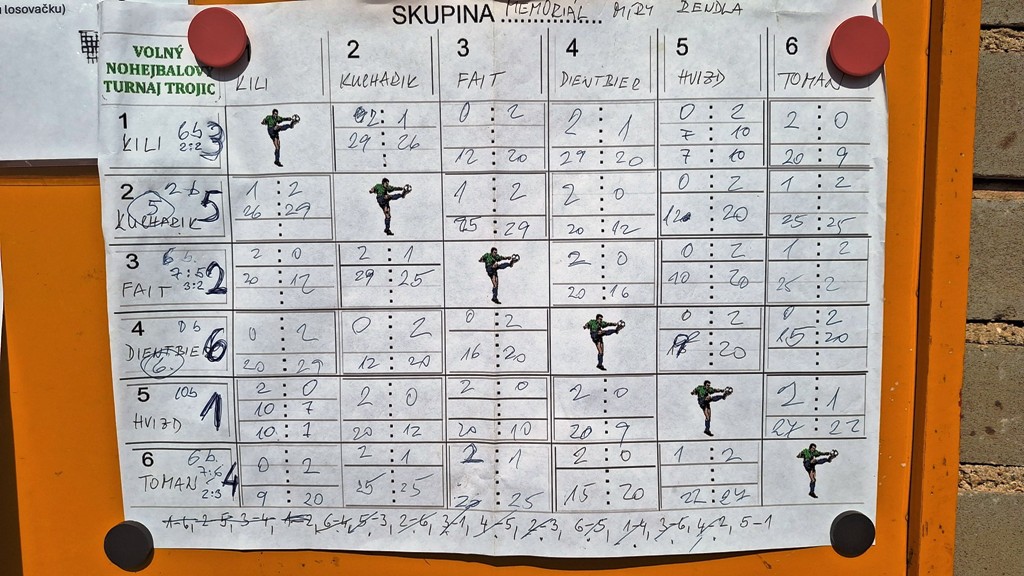 losovačku)
SKUPINA MEMORIÁL MÍRY BENDLA
VOLNÝ
NOHEJBALOVÝ
TURNAJ TROJIC
KILI
2 KUCHAŘÍK
3 FAIT
4 DIENTBIER
5 HVIZD
6 TOMAN
1 KILI 6b 2:2 3
2 : 1
29 : 26
0 : 2
12 : 20
2 : 1
29 : 20
0 : 2
7 : 10
7 : 10
2 : 0
20 : 9
2 KUCHAŘÍK 2 b. 5 5
1 : 2
26 : 29
1 : 2
25 : 29
2 : 0
20 : 12
0 : 2
12 : 20
1 : 2
25 : 25
3 FAIT 6 b. 7:5 3:2 2
2 : 0
20 : 12
2 : 1
29 : 25
2 : 0
20 : 16
0 : 2
10 : 20
1 : 2
25 : 2
4 DIENTBIER 0 b 6. 6
0 : 2
20 : 29
0 : 2
12 : 20
0 : 2
16 : 20
0 : 2
: 20
0 : 2
15 : 20
5 HVIZD 10b 1
2 : 0
10 : 7
10 : 7
2 : 0
20 : 12
2 : 0
20 : 10
2 : 0
20 : 9
2 : 1
27 : 22
6 TOMAN 6 b. 7:6 2:3 4
0 : 2
9 : 20
2 : 1
25 : 25
2 : 1
: 25
2 : 0
15 : 20
1 : 2
22 : 27
1-6, 2-5, 3-4, 1-2, 6-4, 5-3, 2-6, 3-1, 4-5, 2-3, 6-5, 1-4, 3-6, 4-2, 5-1